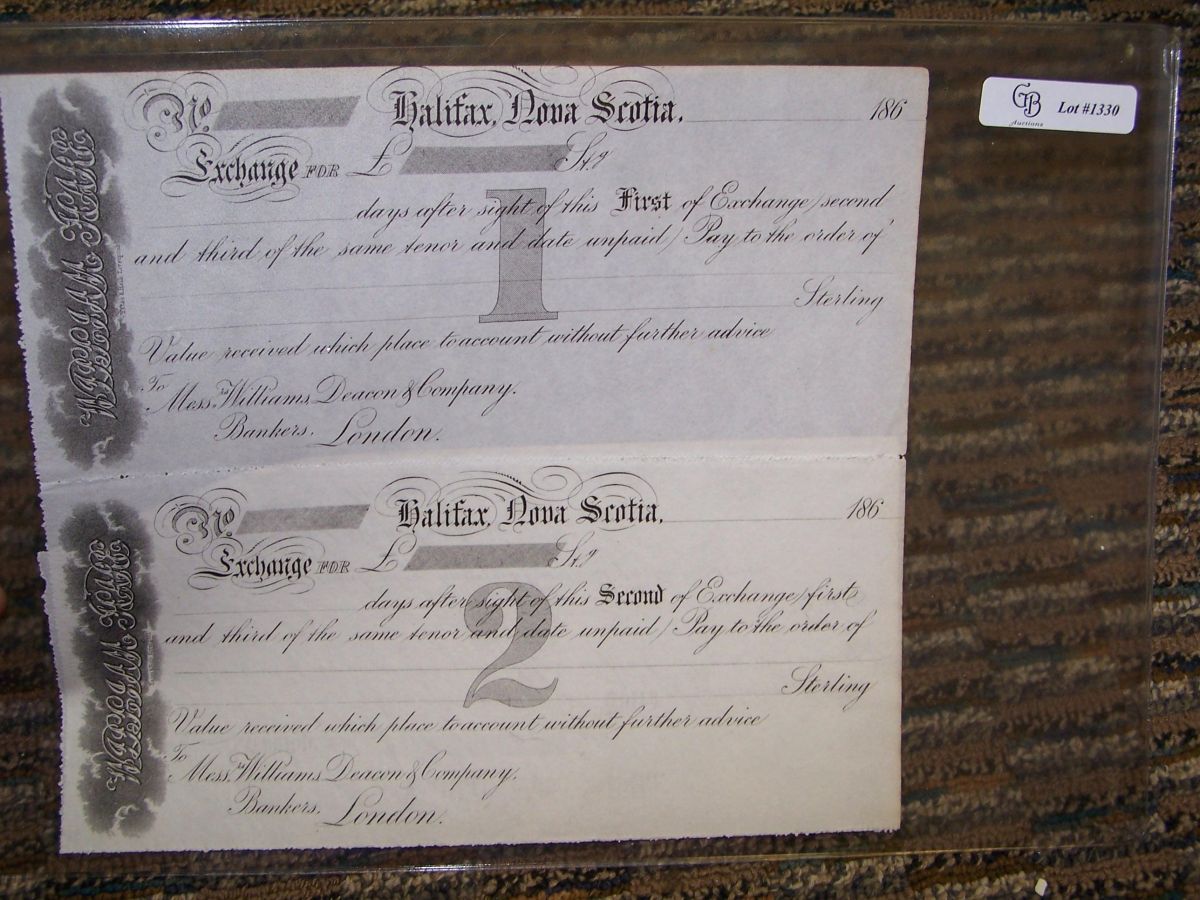 No. Halifax, Nova Scotia, 186
Exchange FOR £ Stg
days after sight of this First of Exchange (second
and third of the same tenor and date unpaid) Pay to the order of
1
Sterling
Value received which place to account without further advice
To
Messrs Williams, Deacon & Company.
Bankers. London.
WILLIAM HARE
No. Halifax, Nova Scotia, 186
Exchange FOR £ Stg
days after sight of this Second of Exchange (first
and third of the same tenor and date unpaid) Pay to the order of
2
Sterling
Value received which place to account without further advice
To
Messrs Williams, Deacon & Company.
Bankers. London.
WILLIAM HARE
GB
Auctions
Lot #1330